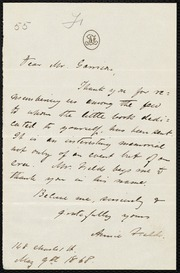 55
Dear Mr. Garrison,
Thank you for re-
membering us among the few
to whom the little book dedi-
cated to yourself, has been sent
It is an interesting memorial
not only of an event but of an
era. Mr. Fields begs me to
thank you in his name,
Believe me, sincerely &
gratefully yours
Annie Fields.
148 Charles St.
May 9th 1868